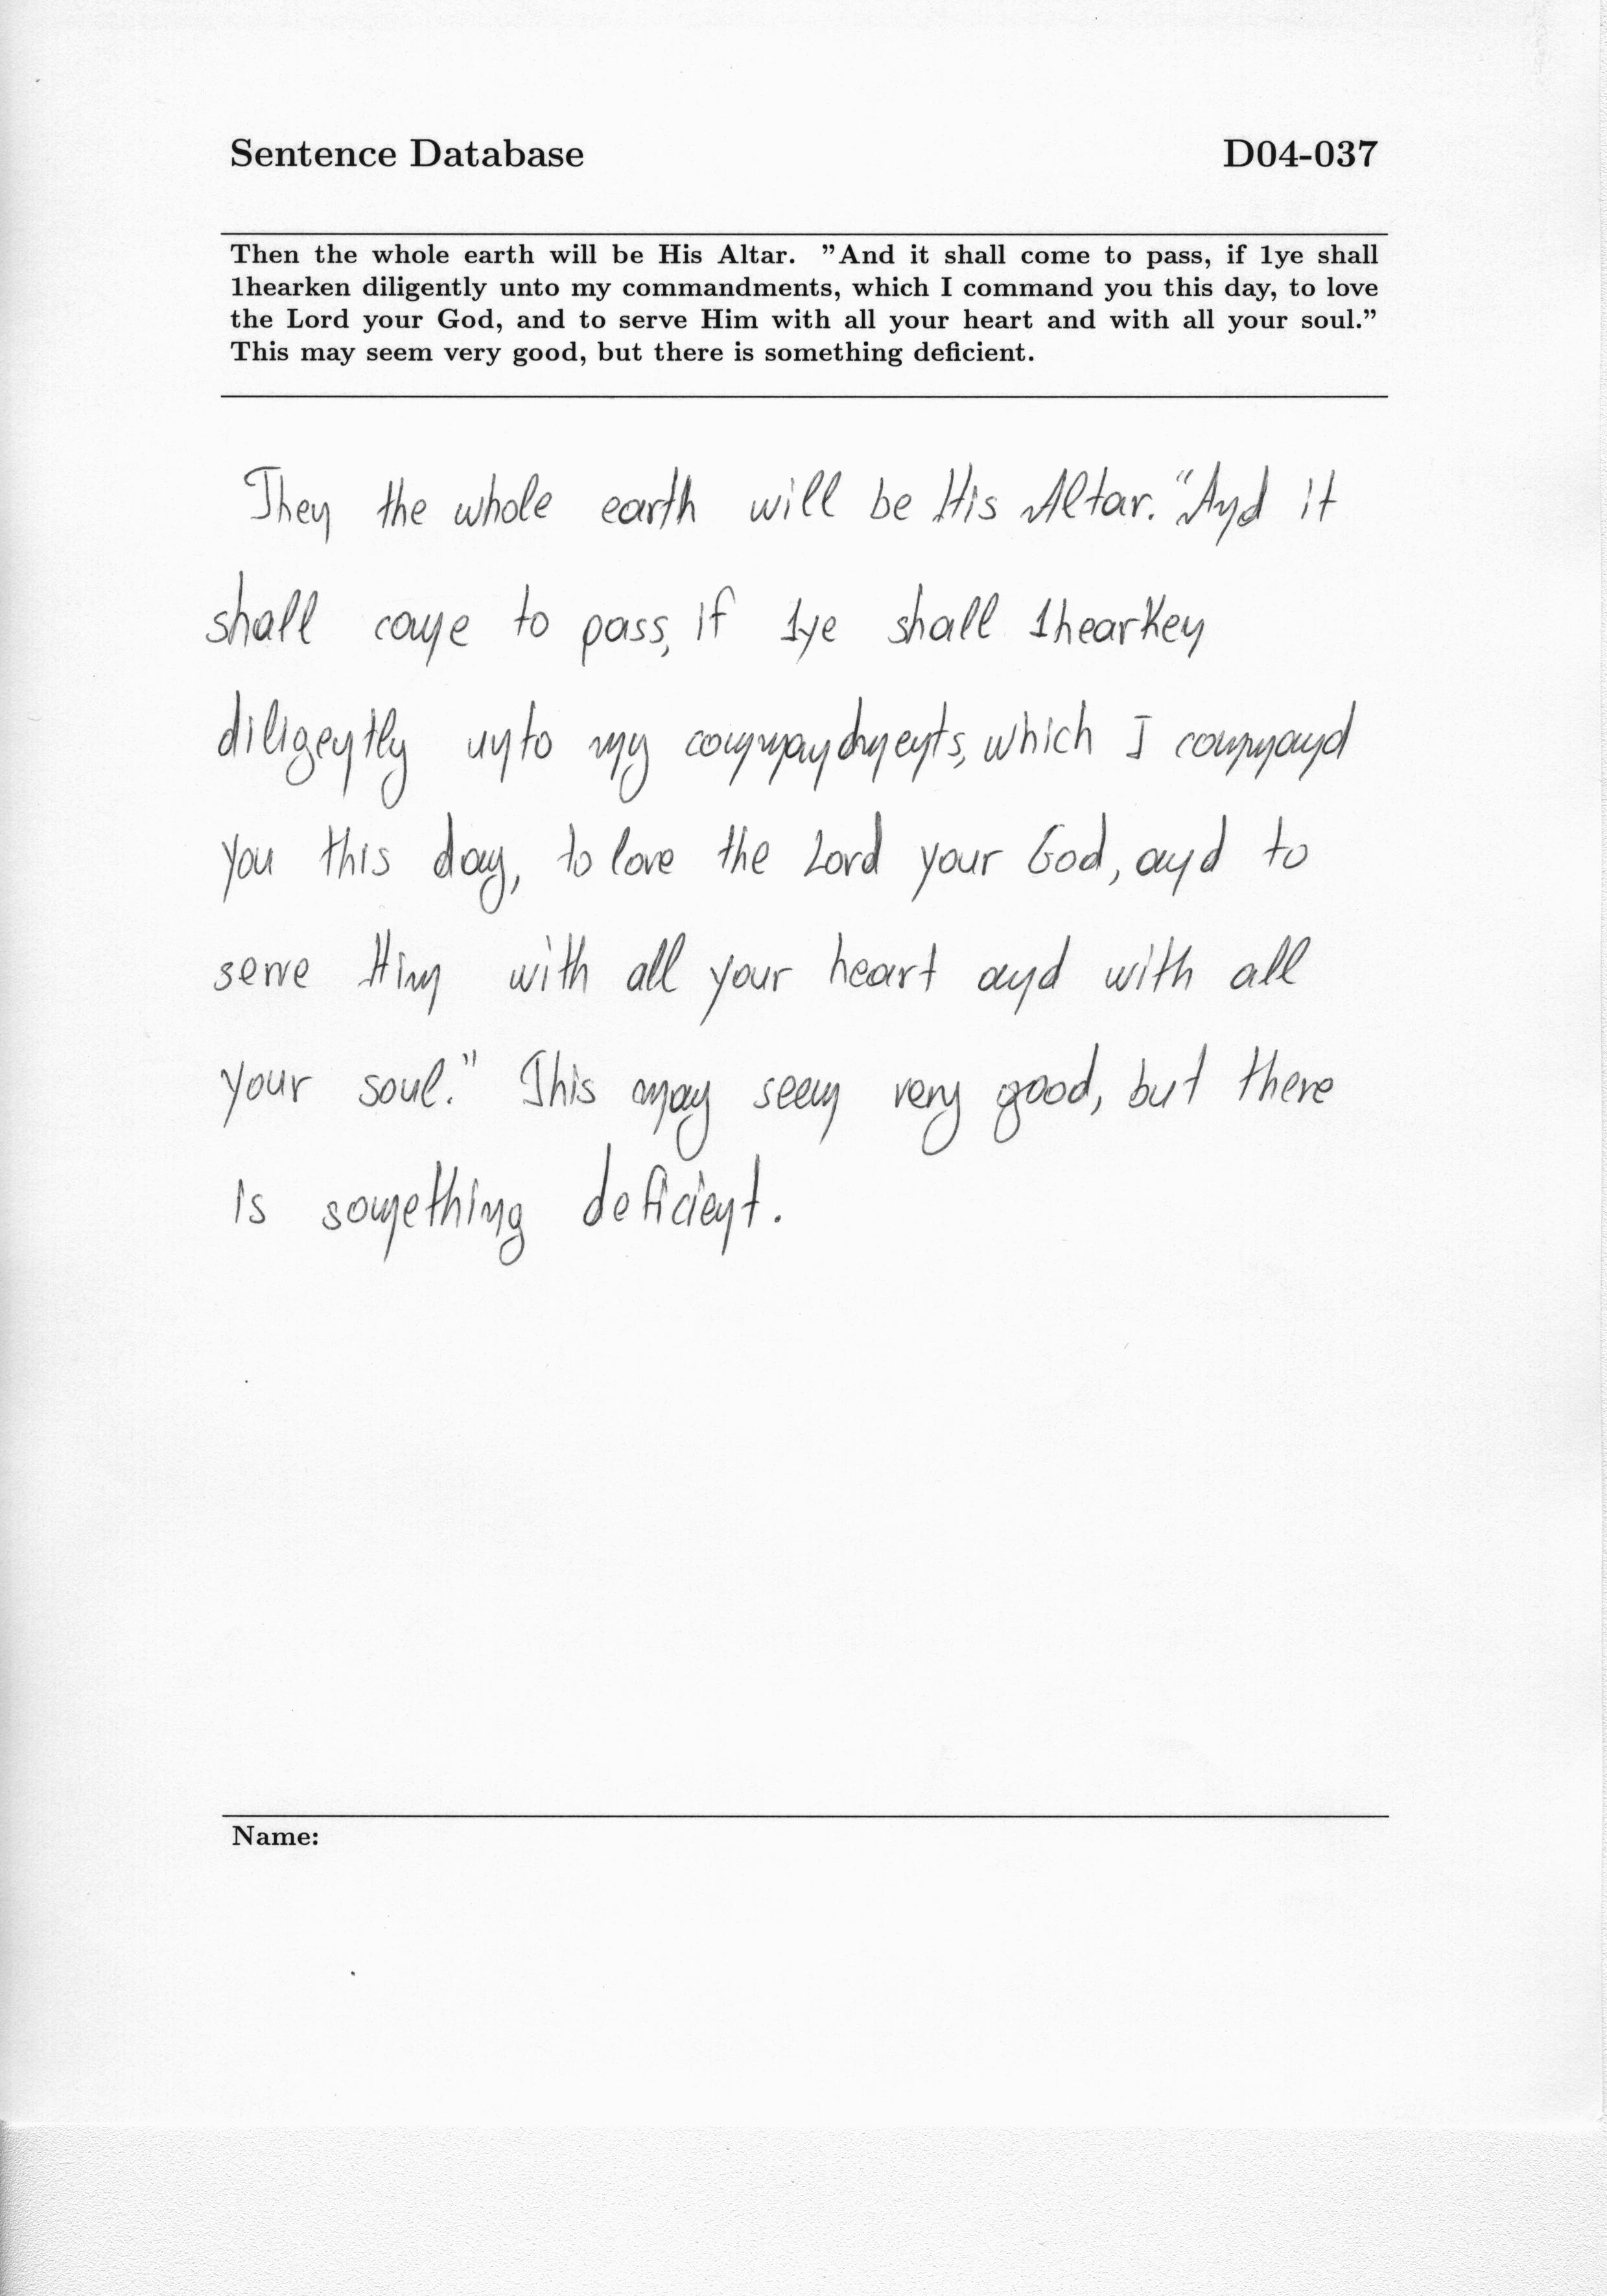 Sentence Database D04-037
Then the whole earth will be His Altar. "And it shall come to pass, if 1ye shall
1hearken diligently unto my commandments, which I command you this day, to love
the Lord your God, and to serve Him with all your heart and with all your soul."
This may seem very good, but there is something deficient.
Then the whole earth will be His Altar. "And it
shall come to pass, if 1ye shall 1hearken
diligently unto my commandments, which I command
you this day, to love the Lord your God, and to
serve Him with all your heart and with all
your soul." This may seem very good, but there
is something deficient.
Name: